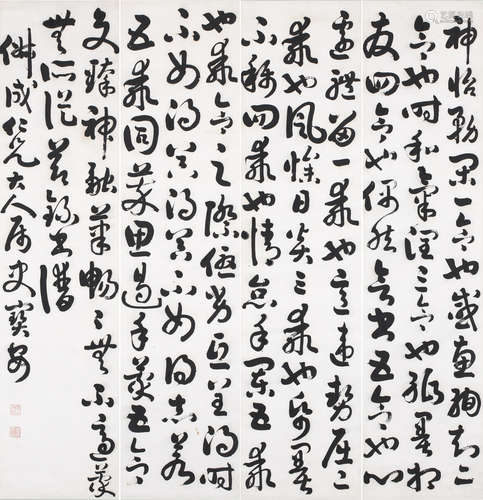 神怡務閑一合也感惠徇知二
合也時和氣潤三合也紙墨相
發四合也偶然欲書五合也心
遽體留一乖也意違勢屈二
乖也風燥日炎三乖也紙墨
不稱四乖也情怠手闌五乖
也乖合之際優劣互差得時
不如得器得器不如得志若
五乖同萃思遏手蒙五合
交臻神融筆暢〻無不適蒙
無所從 節錄書譜
佛成仁兄大人屬 史寶安